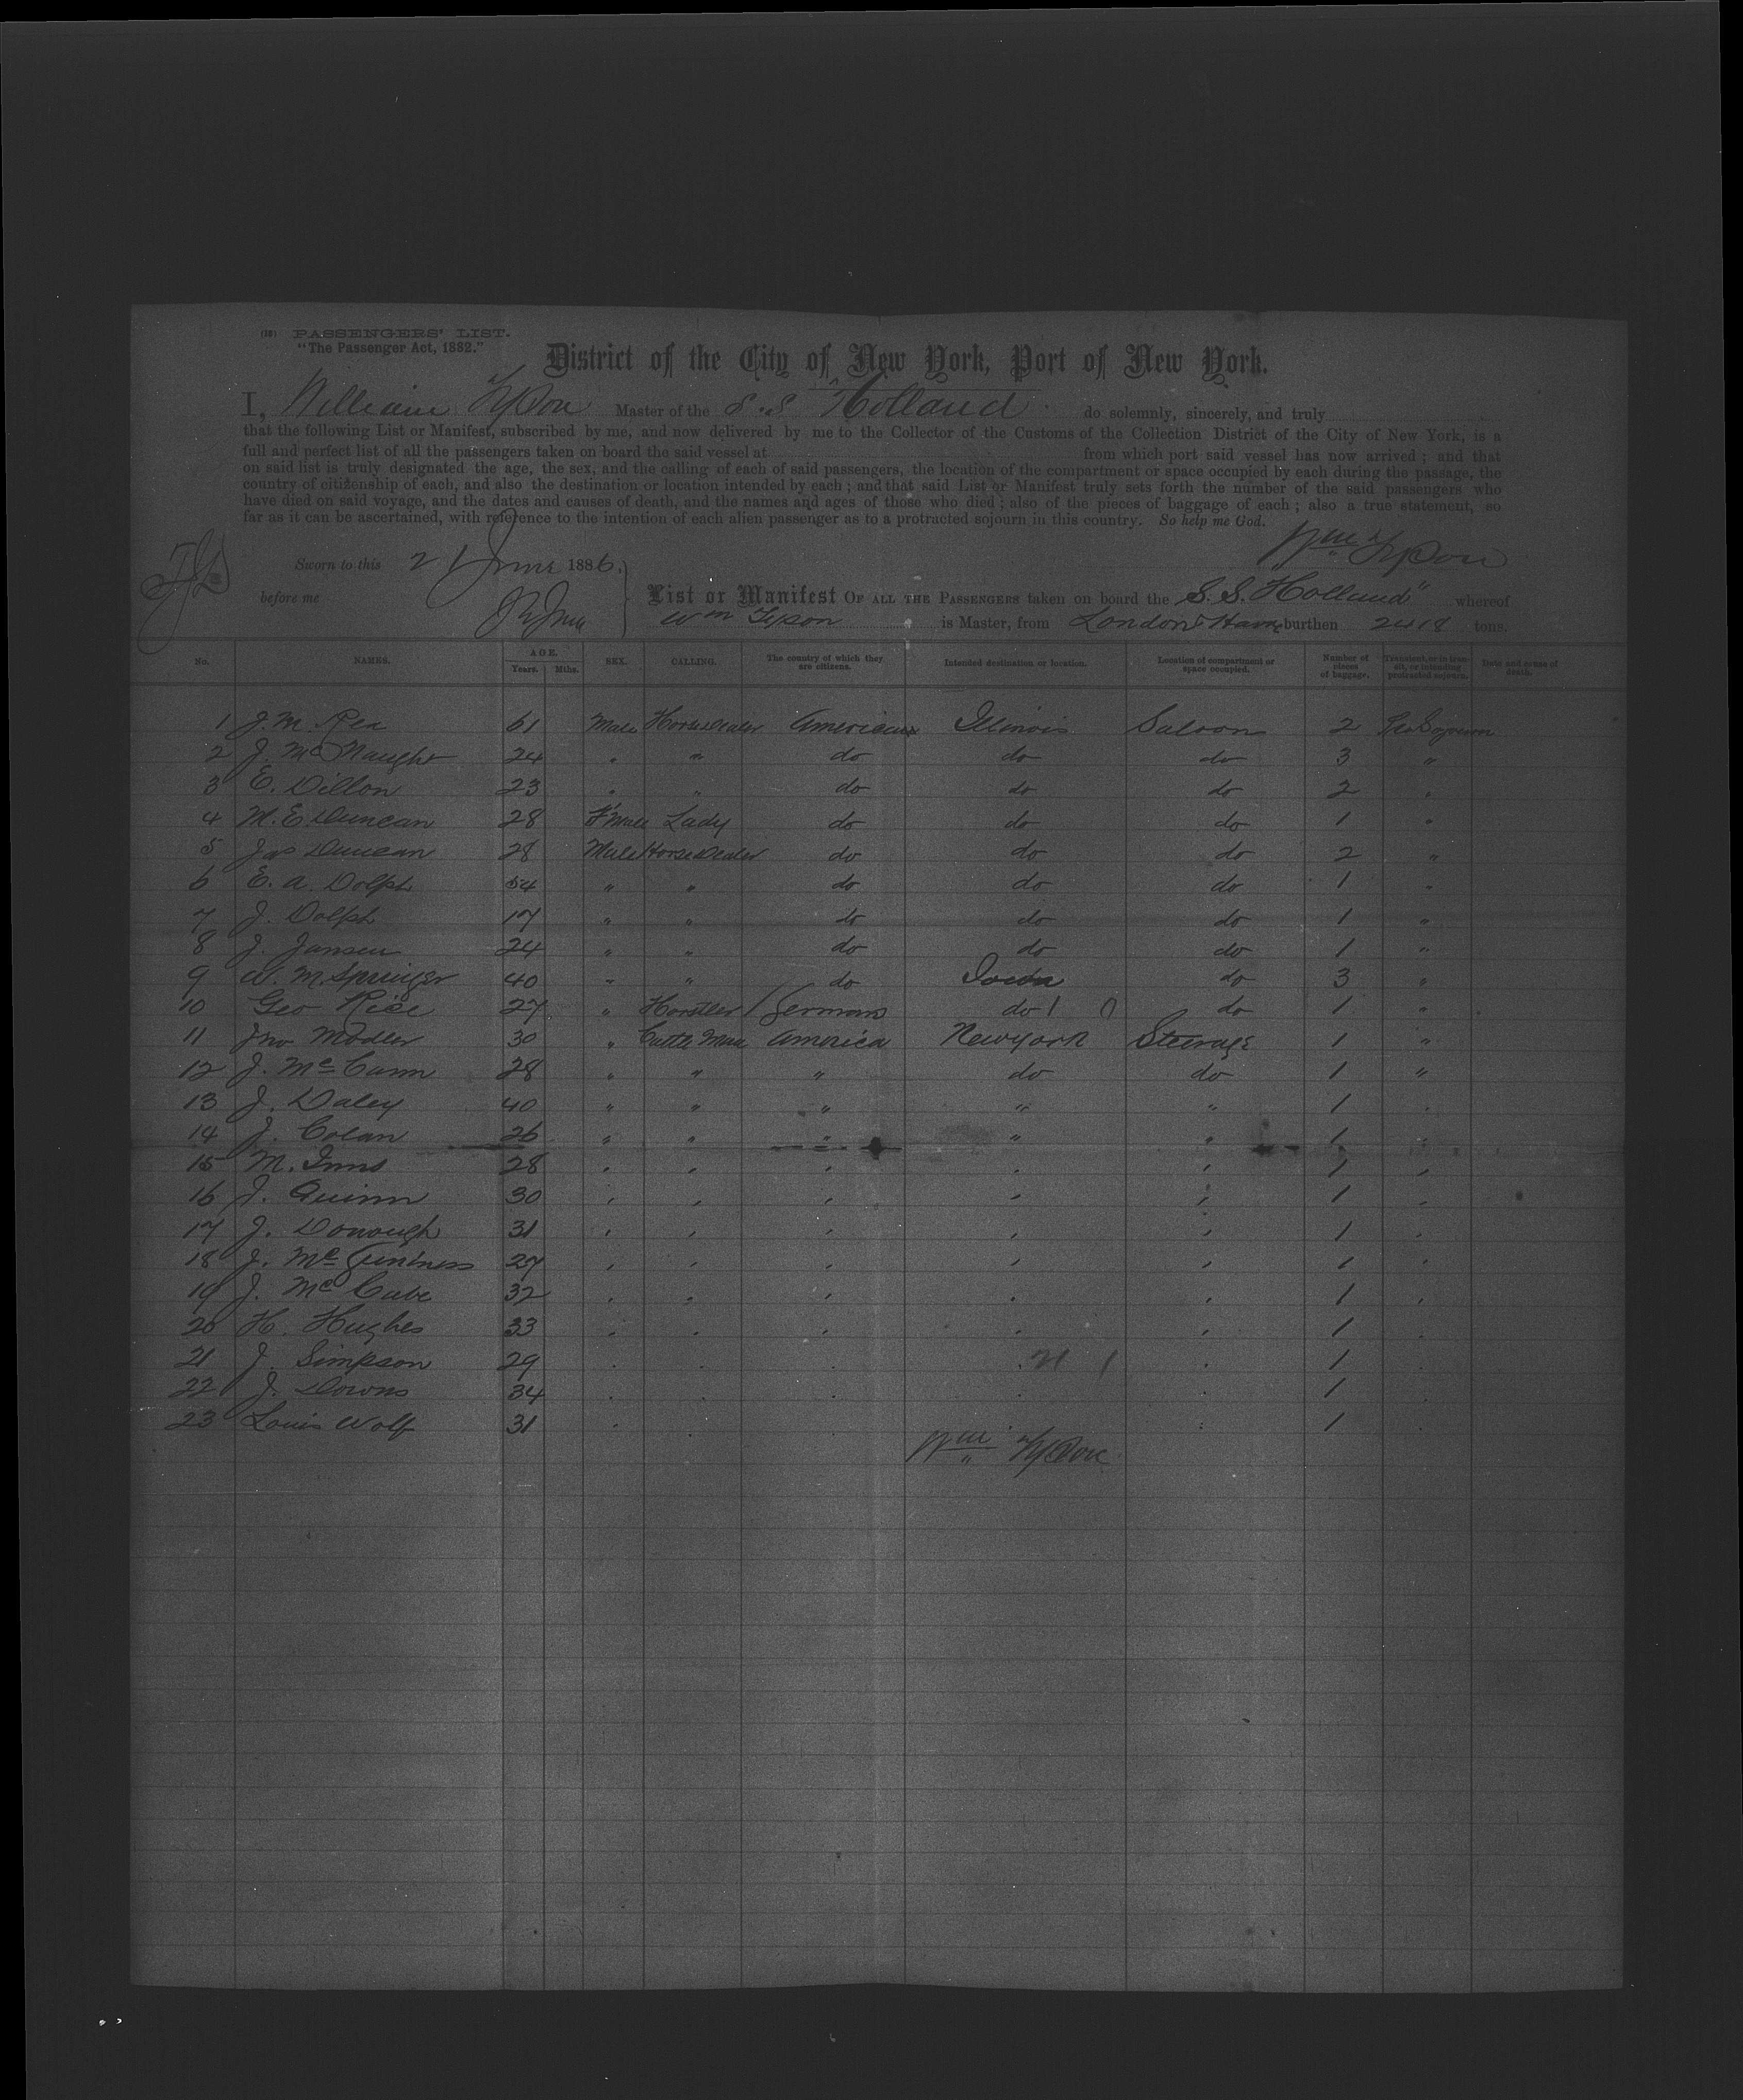 (18) PASSENGERS' LIST.
"The Passenger Act, 1882."
District of the City of New York, Port of New York.
I, William Tyson Master of the S.S "Holland" do solemnly, sincerely, and truly
that the following List or Manifest, subscribed by me, and now delivered by me to the Collector of the Customs of the Collection District of the City of New York, is a
full and perfect list of all the passengers taken on board the said vessel at from which port said vessel has now arrived; and that
on said list is truly designated the age, the sex, and the calling of each of said passengers, the location of the compartment or space occupied by each during the passage, the
country of citizenship of each, and also the destination or location intended by each; and that said List or Manifest truly sets forth the number of the said passengers who
have died on said voyage, and the dates and causes of death, and the names and ages of those who died; also of the pieces of baggage of each; also a true statement, so
far as it can be ascertained, with reference to the intention of each alien passenger as to a protracted sojourn in this country. So help me God.
Wm Tyson
Sworn to this 21 June 1886.
before me
List or Manifest OF ALL THE PASSENGERS taken on board the S.S. "Holland" whereof
Wm Tyson is Master, from London & burthen 2418 tons.
No. NAMES. AGE. Years. Mths. SEX. CALLING. The country of which they are citizens. Intended destination or location. Location of compartment or space occupied. Number of pieces of baggage. Transient, or in transit, or intending protracted sojourn. Date and cause of death.
1 J. M. Rea 61 Male Horse Dealer American Illinois Saloon 2
2 J. McNaught 24 " " do do do 3 "
3 E. Dillon 23 " " do do do 2 "
4 M. E. Duncan 28 F'male Lady do do do 1 "
5 Jas Duncan 28 Male Horse Dealer do do do 2 "
6 E. A. Dolph 54 " " do do do 1 "
7 J. Dolph 17 " " do do do 1 "
8 J. Jansen 24 " " do do do 1 "
9 W. M. Springer 40 " " do Iowa do 3 "
10 Geo Rice 27 " Horstler German do do 1 "
11 Jno Modler 30 " Cattle Man America New York Steerage 1 "
12 J. McCann 28 " " " do do 1 "
13 J. Daley 40 " " " " " 1 "
14 J. Colan 26 " " " " " 1 "
15 M. Inns 28 " " " " " 1 "
16 J. Quinn 30 " " " " " 1 "
17 J. Donough 31 " " " " " 1 "
18 J. McGuinness 27 " " " " " 1 "
19 J. McCabe 32 " " " " " 1 "
20 H. Hughes 33 " " " " " 1 "
21 J. Simpson 29 " " " " 21 1 " 1 "
22 J. Downs 34 " " " " " 1 "
23 Louis Wolf 31 " " " " " 1 "
Wm Tyson